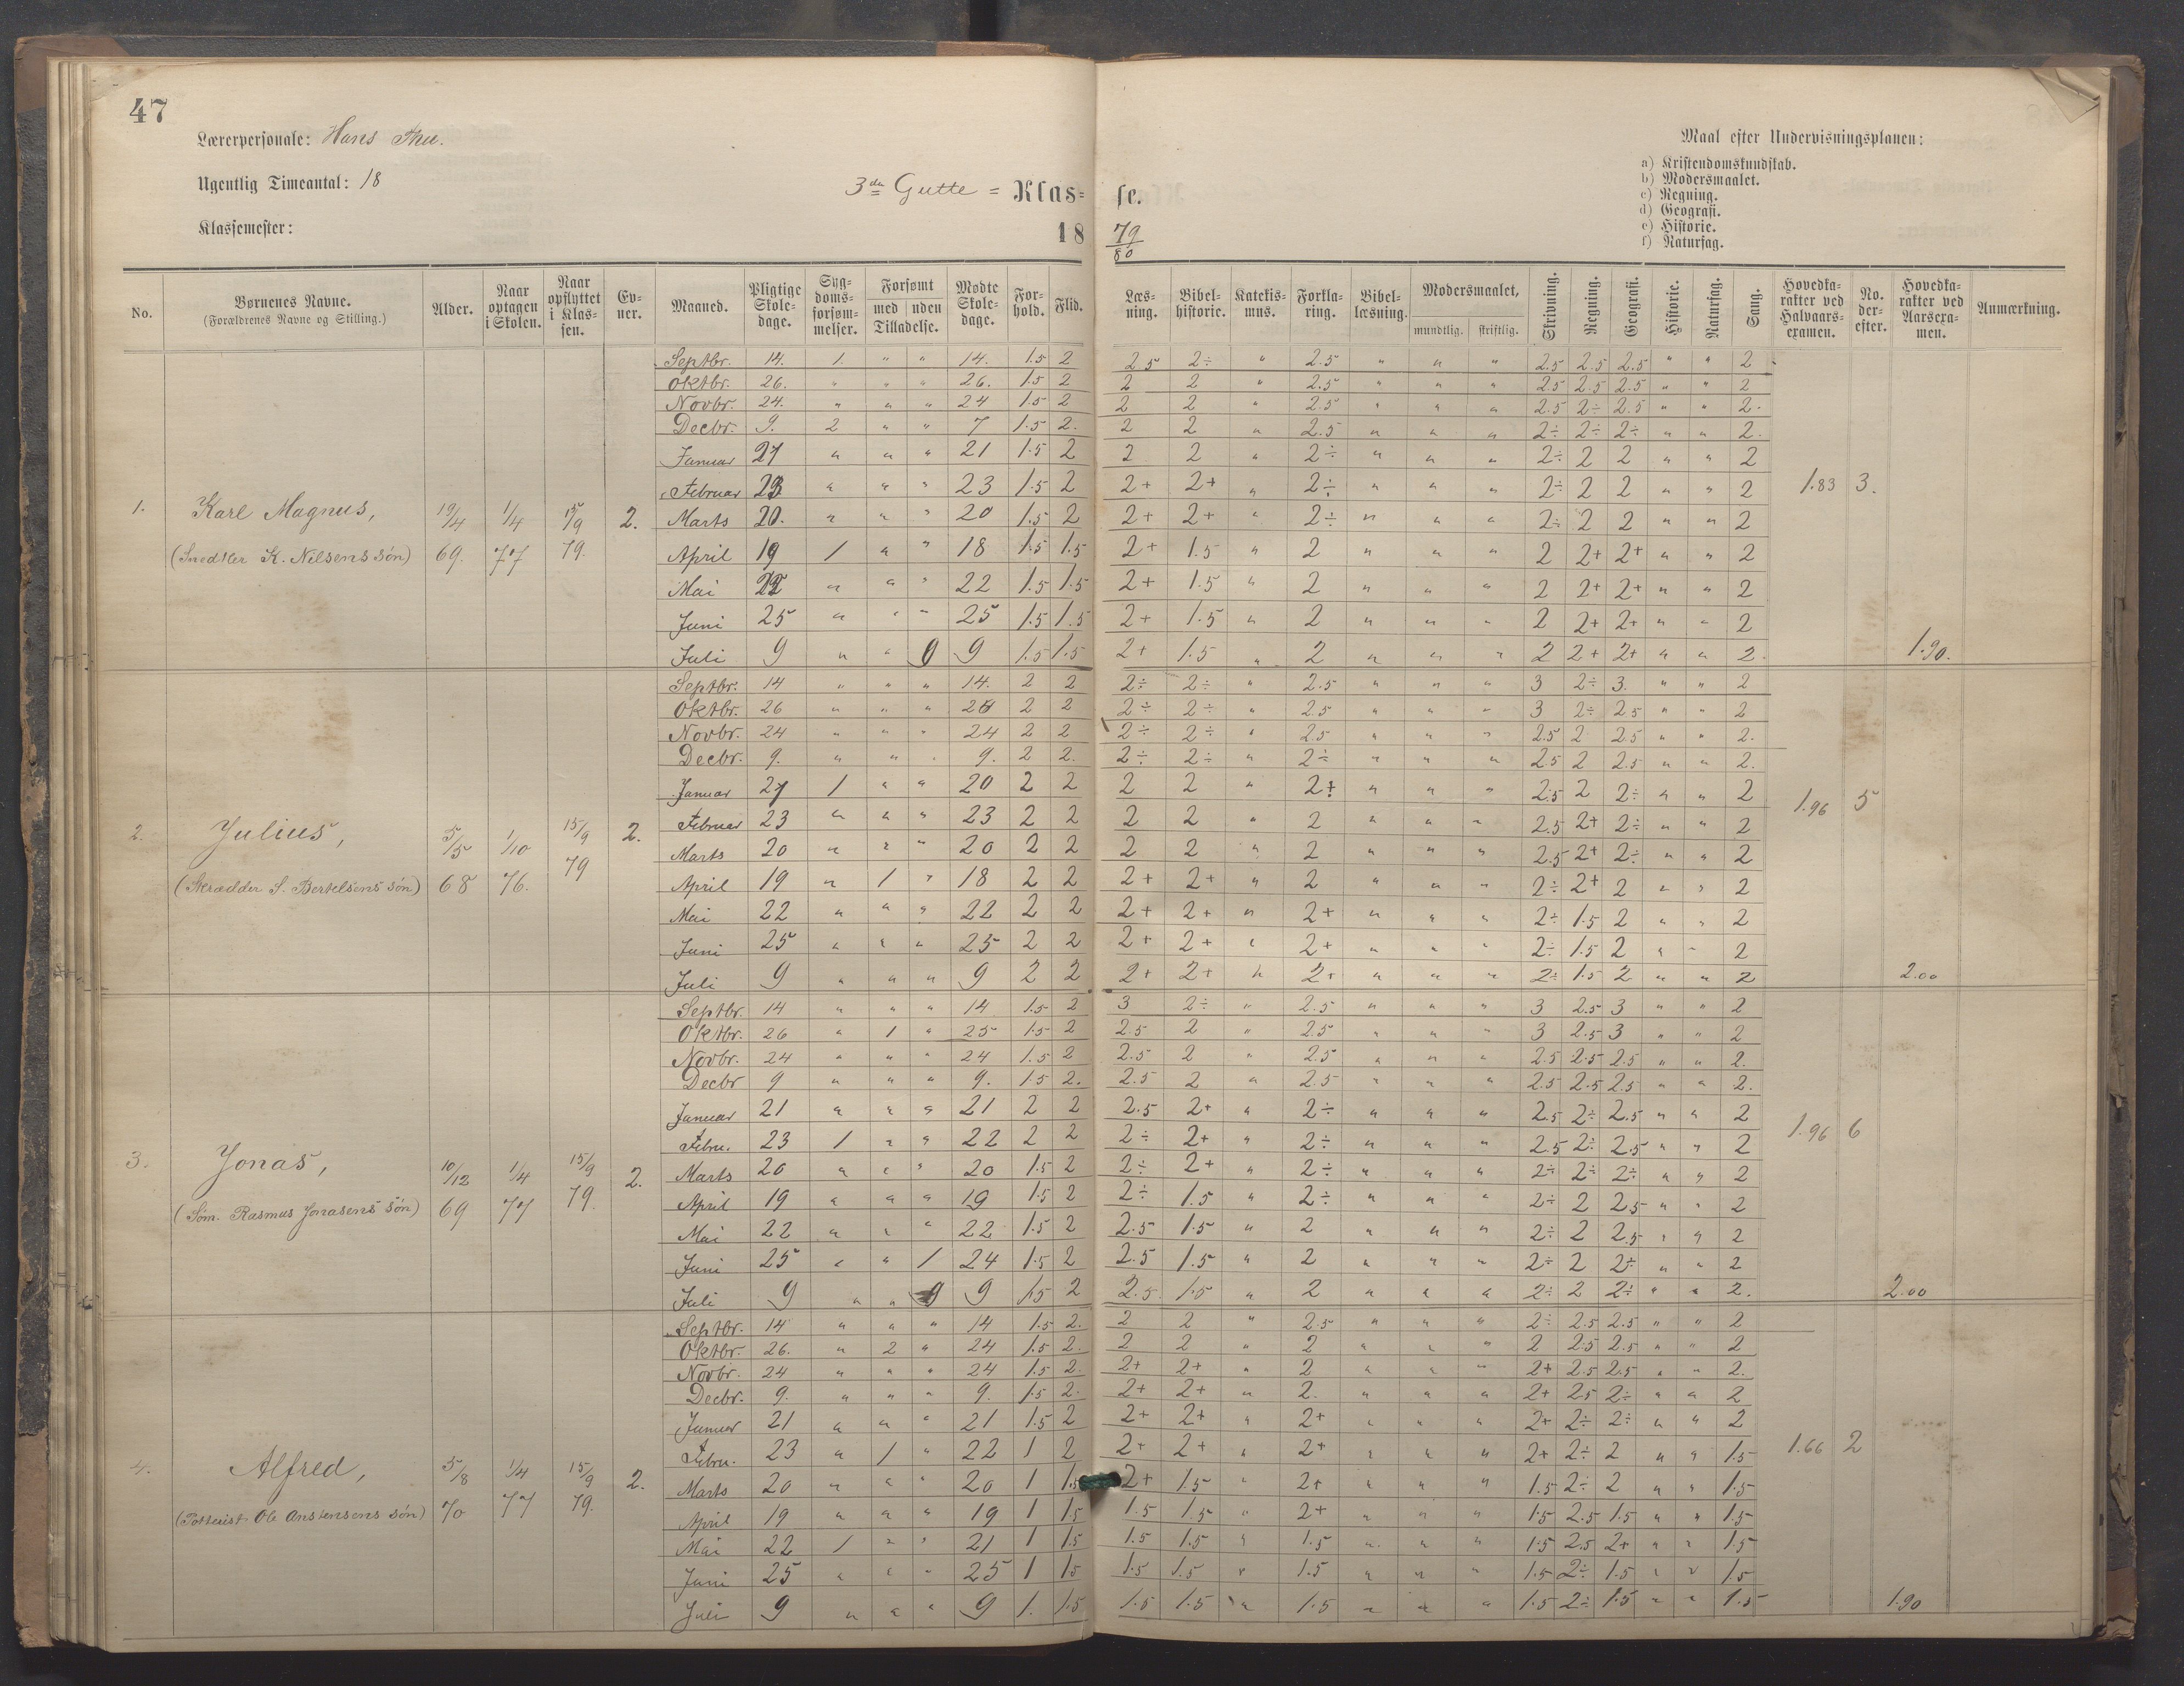 47
Lærerpersonale: Hans Thu.
Ugentlig Timeantal: 18
Klassemester:
3die Gutte = Klas=
se.
18
79/80
Maal efter Undervisningsplanen:
a) Kristendomskundskab.
b) Modersmaalet.
c) Regning.
d) Geografi.
e) Historie.
f) Naturfag.
No. Børnenes Navne. (Forældrenes Navne og Stilling.) Alder. Naar optagen i Skolen. Naar opflyttet i Klas-sen. Ev-ner. Maaned. Pligtige Skole-dage. Syg-doms-forsøm-melser. Forsømt med uden Tilladelse. Mødte Skole-dage. For-hold. Flid. Læs-ning. Bibel-historie. Katekis-mus. Forkla-ring. Bibel-læsning. Modersmaalet, mundtlig. skriftlig. Skrivning. Regning. Geografi. Historie. Naturfag. Sang. Hovedka-rakter ved Halvaars-examen. No. der-efter. Hovedka-rakter ved Aarsexa-men. Anmærkning.
1. Karl Magnus, 19/4 69. 1/4 77 15/9 79. 2. 1.83 3. 1.90.
(Snedker K. Nilsens søn)
Septbr. 14. 1. " " 14. 1.5 2 2.5 2÷ " 2.5 " " " 2.5 2.5 2.5 " " 2
Oktbr. 26. " " " 26. 1.5 2 2 2 " 2.5 " " " 2.5 2.5 2.5 " " 2
Novbr. 24. " " " 24 1.5 2 2 2 " 2.5 " " " 2.5 2÷ 2.5 " " 2.
Decbr. 9. 2 " " 7 1.5 2. 2 2 " 2.5 " " " 2÷ 2÷ 2÷ " " 2.
Januar 21 " " " 21 1.5 2 2 2 " 2÷ " " " 2÷ 2 2 " " 2
Februar 23 " " " 23 1.5 2 2+ 2+ " 2÷ " " " 2÷ 2 2 " " 2
Marts 20. " " " 20 1.5 2 2+ 2+ " 2÷ " " " 2÷ 2 2 " " 2
April 19 1 " " 18 1.5 1.5 2+ 1.5 " 2 " " " 2 2+ 2+ " " 2
Mai 22 " " " 22 1.5 1.5 2+ 1.5 " 2 " " " 2 2+ 2+ " " 2
Juni 25 " " " 25 1.5 1.5 2+ 1.5 " 2 " " " 2 2+ 2+ " " 2
Juli 9 " " 9 1.5 1.5 2+ 1.5 " 2 " " " 2 2+ 2+ " " 2.
2. Julius, 5/5 68 1/10 76. 15/9 79 2. 1.96 5 2.00
(Skrædder S. Bertelsens søn)
Septbr. 14 " " " 14. 2 2 2÷ 2÷ " 2.5 " " " 3 2÷ 3. " " 2
Oktbr. 26 " " " 26 2 2 2÷ 2÷ " 2.5 " " " 3 2÷ 2.5 " " 2
Novbr. 24 " " " 24 2 2 2÷ 2÷ " 2.5 " " " 2.5 2 2.5 " " 2.
Decbr. 9. " " " 9. 2 2. 2÷ 2÷ " 2÷ " " " 2.5 2 2.5 " " 2.
Januar 21 1 " " 20 2 2 2 2 " 2÷ " " " 2.5 2 2÷ " " 2
Februar 23 " " " 23 2 2 2 2 " 2 " " " 2.5 2+ 2÷ " " 2
Marts 20 " " " 20 2 2 2 2 " 2 " " " 2.5 2+ 2÷ " " 2
April 19 " 1 " 18 2 2 2+ 2+ " 2 " " " 2÷ 2+ 2 " " 2
Mai 22 " " " 22 2 2 2+ 2+ " 2+ " " " 2÷ 1.5 2 " " 2
Juni 25 " " " 25 2 2 2+ 2+ " 2+ " " " 2÷ 1.5 2 " " 2
Juli 9 " " " 9 2 2 2+ 2+ " 2+ " " " 2÷ 1.5 2 " " 2
3. Jonas, 10/12 69 1/4 77 15/9 79. 2. 1.96 6 2.00
(Søm. Rasmus Jonasens søn)
Septbr. 14 " " " 14 1.5 2 3 2÷ " 2.5 " " " 3 2.5 3 " " 2
Oktbr. 26 " 1 " 25 1.5 2 2.5 2 " 2.5 " " " 3 2.5 3 " " 2
Novbr. 24 " " " 24 1.5 2 2.5 2 " 2.5 " " " 2.5 2.5 2.5 " " 2.
Decbr 9 " " " 9. 1.5 2. 2.5 2 " 2.5 " " " 2.5 2.5 2.5 " " 2.
Januar 21 " " " 21 2 2 2.5 2+ " 2÷ " " " 2.5 2÷ 2.5 " " 2
Febru. 23 1 " " 22 2 2 2÷ 2+ " 2÷ " " " 2.5 2÷ 2.5 " " 2
Marts 20 " " " 20 1.5 2 2÷ 2+ " 2÷ " " " 2÷ 2÷ 2÷ " " 2
April 19 " " " 19 1.5 2 2÷ 1.5 " 2÷ " " " 2÷ 2 2.5 " " 2
Mai 22 " " " 22 1.5 2 2.5 1.5 " 2 " " " 2÷ 2 2.5 " " 2
Juni 25 " " 1 24 1.5 2 2.5 1.5 " 2 " " " 2÷ 2 2÷ " " 2
Juli 9 " " 9 1.5 2 2.5 1.5 " 2 " " " 2÷ 2 2÷ " " 2.
4. Alfred, 5/8 70 1/4 77 15/9 79. 2. 1.66 2 1.90
(Ole søn)
Septbr. 14 " " " 14 1.5 2. 2 2 " 2.5 " " " 2÷ 2.5 2.5 " " 2
Oktbr. 26. " 2 " 24 1.5 2. 2 2 " 2 " " " 2 2.5 2.5 " " 2
Novbr. 24 " " " 24 1.5 2. 2+ 2+ " 2 " " " 2+ 2.5 2.5 " " 2.
Decbr. 9. " " " 9. 1.5 2. 2+ 2+ " 2. " " " 2+ 2.5 2÷ " " 2
Januar 21 " " " 21 1.5 2 2+ 2+ " 2+ " " " 2+ 2÷ 2÷ " " 2
Febru. 23 " 1 " 22 1 2 2+ 2+ " 2+ " " " 2+ 2÷ 2 " " 1.5
Marts 20 " " " 20 1 1.5 2+ 1.5 " 2+ " " " 1.5 2÷ 2 " " 1.5
April 19 " " " 19 1 1.5 1.5 1.5 " 2+ " " " 1.5 2.5 1.5 " " 1.5
Mai 22 1 " " 21 1 1.5 1.5 1.5 " 1.5 " " " 1.5 2.5 2+ " " 1.5
Juni 25 " " " 25 1 1.5 1.5 1.5 " 1.5 " " " 1.5 2÷ 1.5 " " 1.5
Juli 9 " " " 9 1. 1.5 1.5 1.5 " 1.5 " " " 1.5 2÷ 1.5 " " 1.5